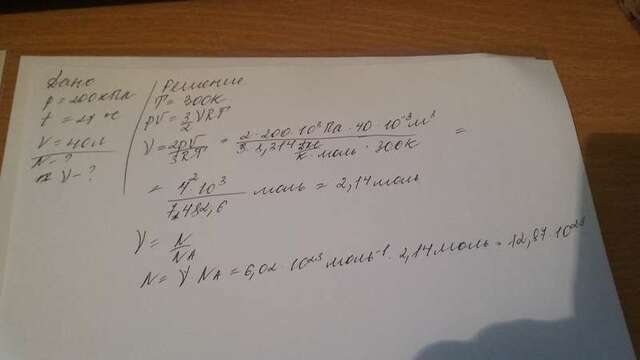 Дано
p = 200 кПа
t = 27 °C
V = 40 л
N - ?
ν - ?
Решение
T = 300К
pV = 3/2 νRT
ν = 2pV/3RT = 2·200·10³Па·40·10⁻³м³ / 3·8,314 Дж/К·моль·300К =
= 4²·10³ / 7482,6 моль = 2,14 моль
ν = N/NA
N = ν·NA = 6,02·10²³ моль⁻¹·2,14 моль = 12,87·10²³